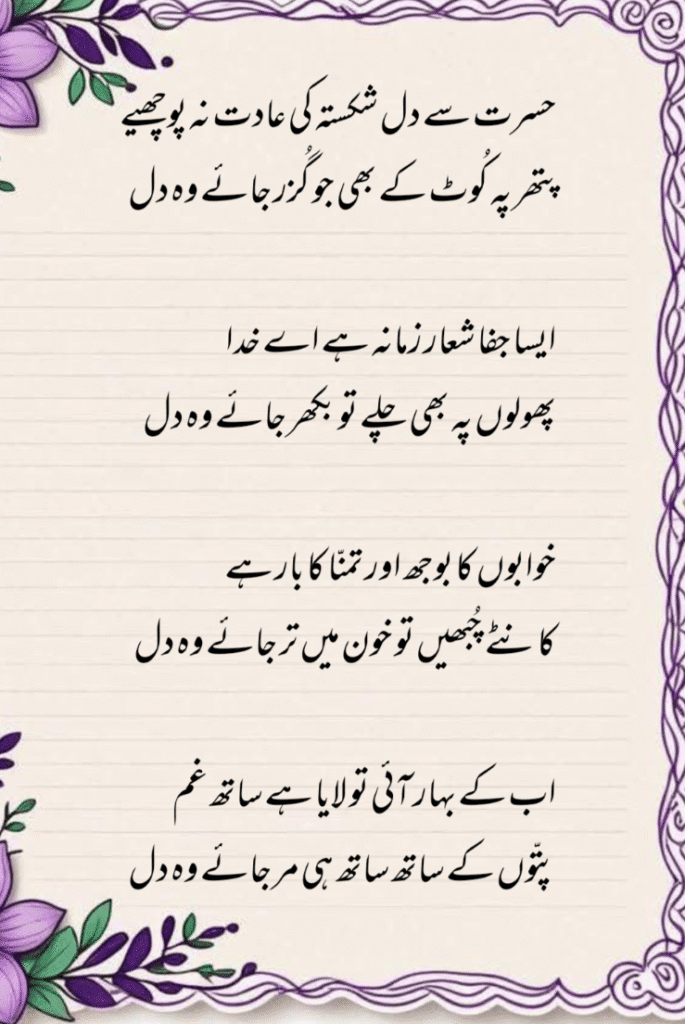 حسرت سے دل شکستہ کی عادت نہ پوچھیے
پتھر پہ کُوٹ کے بھی جو گُزر جائے وہ دل
ایسا جفا شعار زمانہ ہے اے خدا
پھولوں پہ بھی چلے تو بکھر جائے وہ دل
خوابوں کا بوجھ اور تمنّا کا بار ہے
کانٹے چُبھیں تو خون میں تر جائے وہ دل
اب کے بہار آئی تو لایا ہے ساتھ غم
پتّوں کے ساتھ ساتھ ہی مر جائے وہ دل